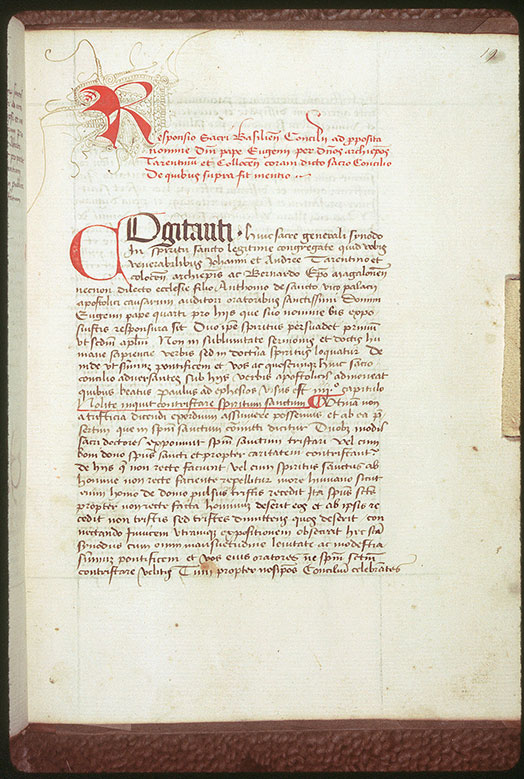 Responsio Sacri Basilien Concilii ad pposita
nomine Dni pape Eugenii per dnos archiepos
Tarentinu et Collocen coram dicto sacro Concilio
De quibus supra fit mentio
COgitanti huic sacre generali synodo
In spiritu sancto legitime congregate quid vobis
venerabilibus Iohanni et Andree Tarentino et
colocen archiepis ac Bernardo Epo
necnon dilecto ecclesie filio Anthonio de sancto vito palacii
apostolici causarum auditori oratoribus sanctissimi Domini
Eugenii pape quarti pro hijs que suo nomine bis expo
suistis responsura sit Duo ipse spiritus persuadet primum
ut scdm aplm Non in sublimitate sermonis et doctis hu
mane sapiencie verbis sed in doctrina spiritus loquatur De
inde ut summu pontificem et vos ac quoscunq huic sacro
concilio adversantes sub hijs verbis apostolicis admoneat
quibus beatus paulus ad ephesios usus est iiij capitulo
Nolite inquit contristare spiritum sanctum Etina non
a tristicia dicendi exordium assumere possemus et ab ea p
sertim que in spm sanctum comitti dicitur Duobz modis
sacri doctores exponunt spm sanctum tristari Vel cum
bom dono spus sancti et propter caritatem contristant
de hijs q non recte faciunt vel cum spiritus sanctus ab
homine non recte faciente repellitur more humano sicut
enim homo de domo pulsus tristis recedit Ita spus scts
propter non recte facta hominum deserit eos et ab ipsis re
cedit non tristis sed tristes dimittens quos deserit con
nectando Invicem utramque expositionem obsecrat hec sca
synodus cum omni mansuetudine lenitate ac modestia
summu pontificem et vos eius oratores ne spm sctm
contristare velitis Tum propter nosipos Conciliu celebrates